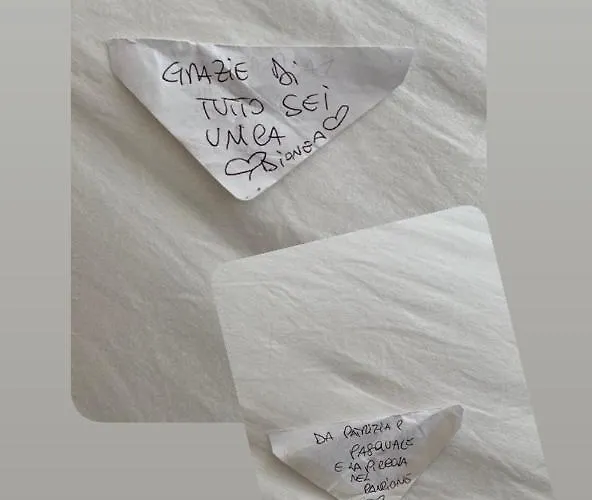 GRAZIE Di
TUTTO SEI
UNICA
DA PATRIZIA e
PASQUALE
E LA PICCOLA
NEL
PANCIONE